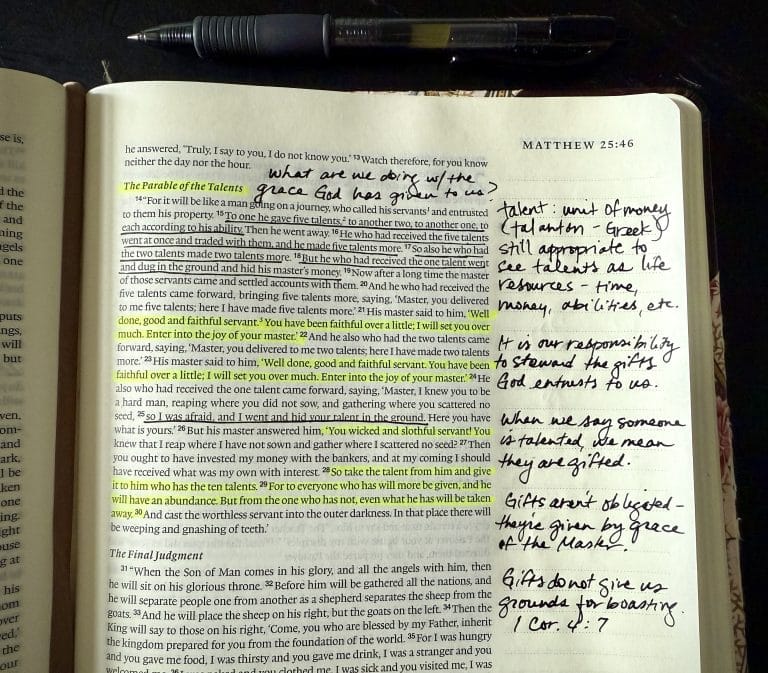 se is,
d the
f the
and
ning
ngels
one
puts
ngs,
will
but
ven.
om-
and
ark,
l be
ken
one
ing.
ght
ouse
g at
his
om
over
ved,'
the
our
MATTHEW 25:46
he answered, 'Truly, I say to you, I do not know you.' 13 Watch therefore, for you know
neither the day nor the hour.
What are we doing w/ the
grace God has given to us?
The Parable of the Talents
14 "For it will be like a man going on a journey, who called his servants¹ and entrusted
to them his property. 15 To one he gave five talents,² to another two, to another one, to
each according to his ability. Then he went away. 16 He who had received the five talents
went at once and traded with them, and he made five talents more. 17 So also he who had
the two talents made two talents more. 18 But he who had received the one talent went
and dug in the ground and hid his master's money. 19 Now after a long time the master
of those servants came and settled accounts with them. 20 And he who had received the
five talents came forward, bringing five talents more, saying, 'Master, you delivered
to me five talents; here I have made five talents more.' 21 His master said to him, 'Well
done, good and faithful servant.³ You have been faithful over a little; I will set you over
much. Enter into the joy of your master.' 22 And he also who had the two talents came
forward, saying, 'Master, you delivered to me two talents; here I have made two talents
more.' 23 His master said to him, 'Well done, good and faithful servant. You have been
faithful over a little; I will set you over much. Enter into the joy of your master.' 24 He
also who had received the one talent came forward, saying, 'Master, I knew you to be
a hard man, reaping where you did not sow, and gathering where you scattered no
seed, 25 so I was afraid, and I went and hid your talent in the ground. Here you have
what is yours.' 26 But his master answered him, 'You wicked and slothful servant! You
knew that I reap where I have not sown and gather where I scattered no seed? 27 Then
you ought to have invested my money with the bankers, and at my coming I should
have received what was my own with interest. 28 So take the talent from him and give
it to him who has the ten talents. 29 For to everyone who has will more be given, and he
will have an abundance. But from the one who has not, even what he has will be taken
away. 30 And cast the worthless servant into the outer darkness. In that place there will
be weeping and gnashing of teeth.'
The Final Judgment
31 "When the Son of Man comes in his glory, and all the angels with him, then
he will sit on his glorious throne. 32 Before him will be gathered all the nations, and
he will separate people one from another as a shepherd separates the sheep from the
goats. 33 And he will place the sheep on his right, but the goats on the left. 34 Then the
King will say to those on his right, 'Come, you who are blessed by my Father, inherit
the kingdom prepared for you from the foundation of the world. 35 For I was hungry
and you gave me food, I was thirsty and you gave me drink, I was a stranger and you
welcomed me, 36 I was naked and you clothed me, I was sick and you visited me, I was
talent: unit of money
(talanton - Greek)
still appropriate to
see talents as life
resources - time,
money, abilities, etc.
It is our responsibility
to steward the gifts
God entrusts to us.
When we say someone
is talented, we mean
they are gifted.
Gifts aren't obligated -
they're given by grace
of the Master.
Gifts do not give us
grounds for boasting.
1 Cor. 4:7